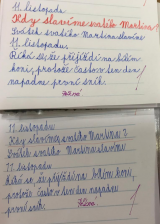 11. listopadu
Kdy slavíme svatého Martina
Svátek svatého Martina slavíme
11. listopadu.
Říká se, že přijíždí na bílém
koni, protože často v ten den
napadne první sníh.
11. listopadu
Kdy slavíme svatého Martina?
Svátek svatého Martina slavíme
11. listopadu.
Říká se, že přijíždí na bílém koni,
protože často v ten den napadne
první sníh.